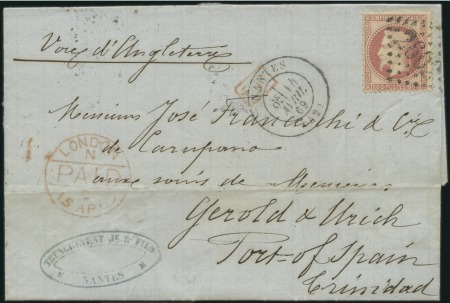 Voie d'Angleterre
NANTES
AVRIL
69
Messieurs José Franceschi & Cie
de Carupano
aux soins de Messieurs
Gerold & Urich
Port of Spain
Trinidad
LONDON
N
PAID
AP
JE & FILS
NANTES